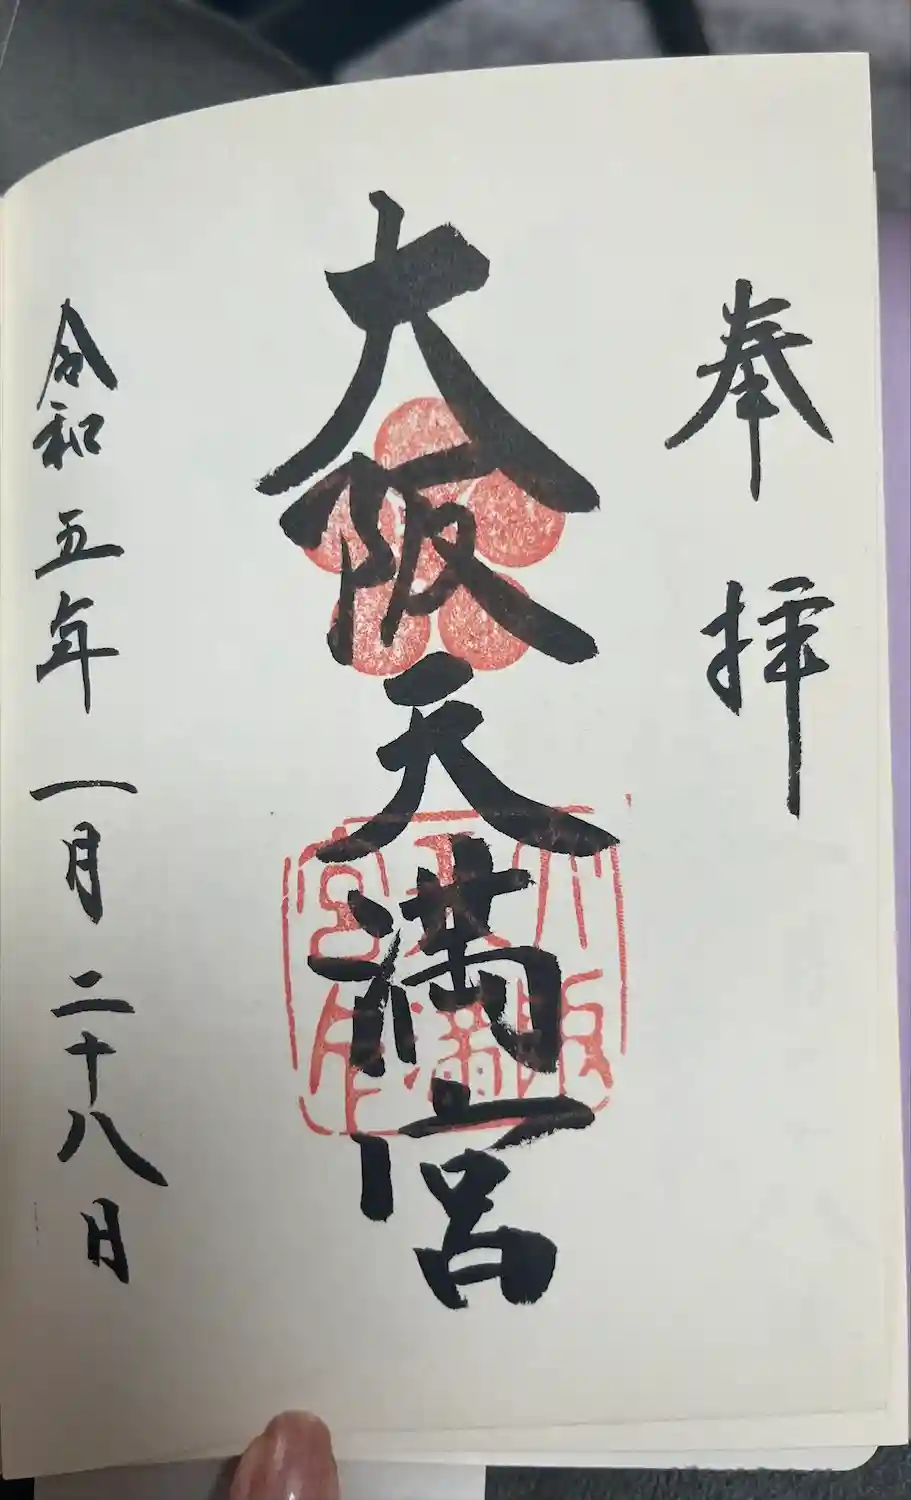 奉拝
大阪天満宮
大阪天満宮印
令和五年一月二十八日